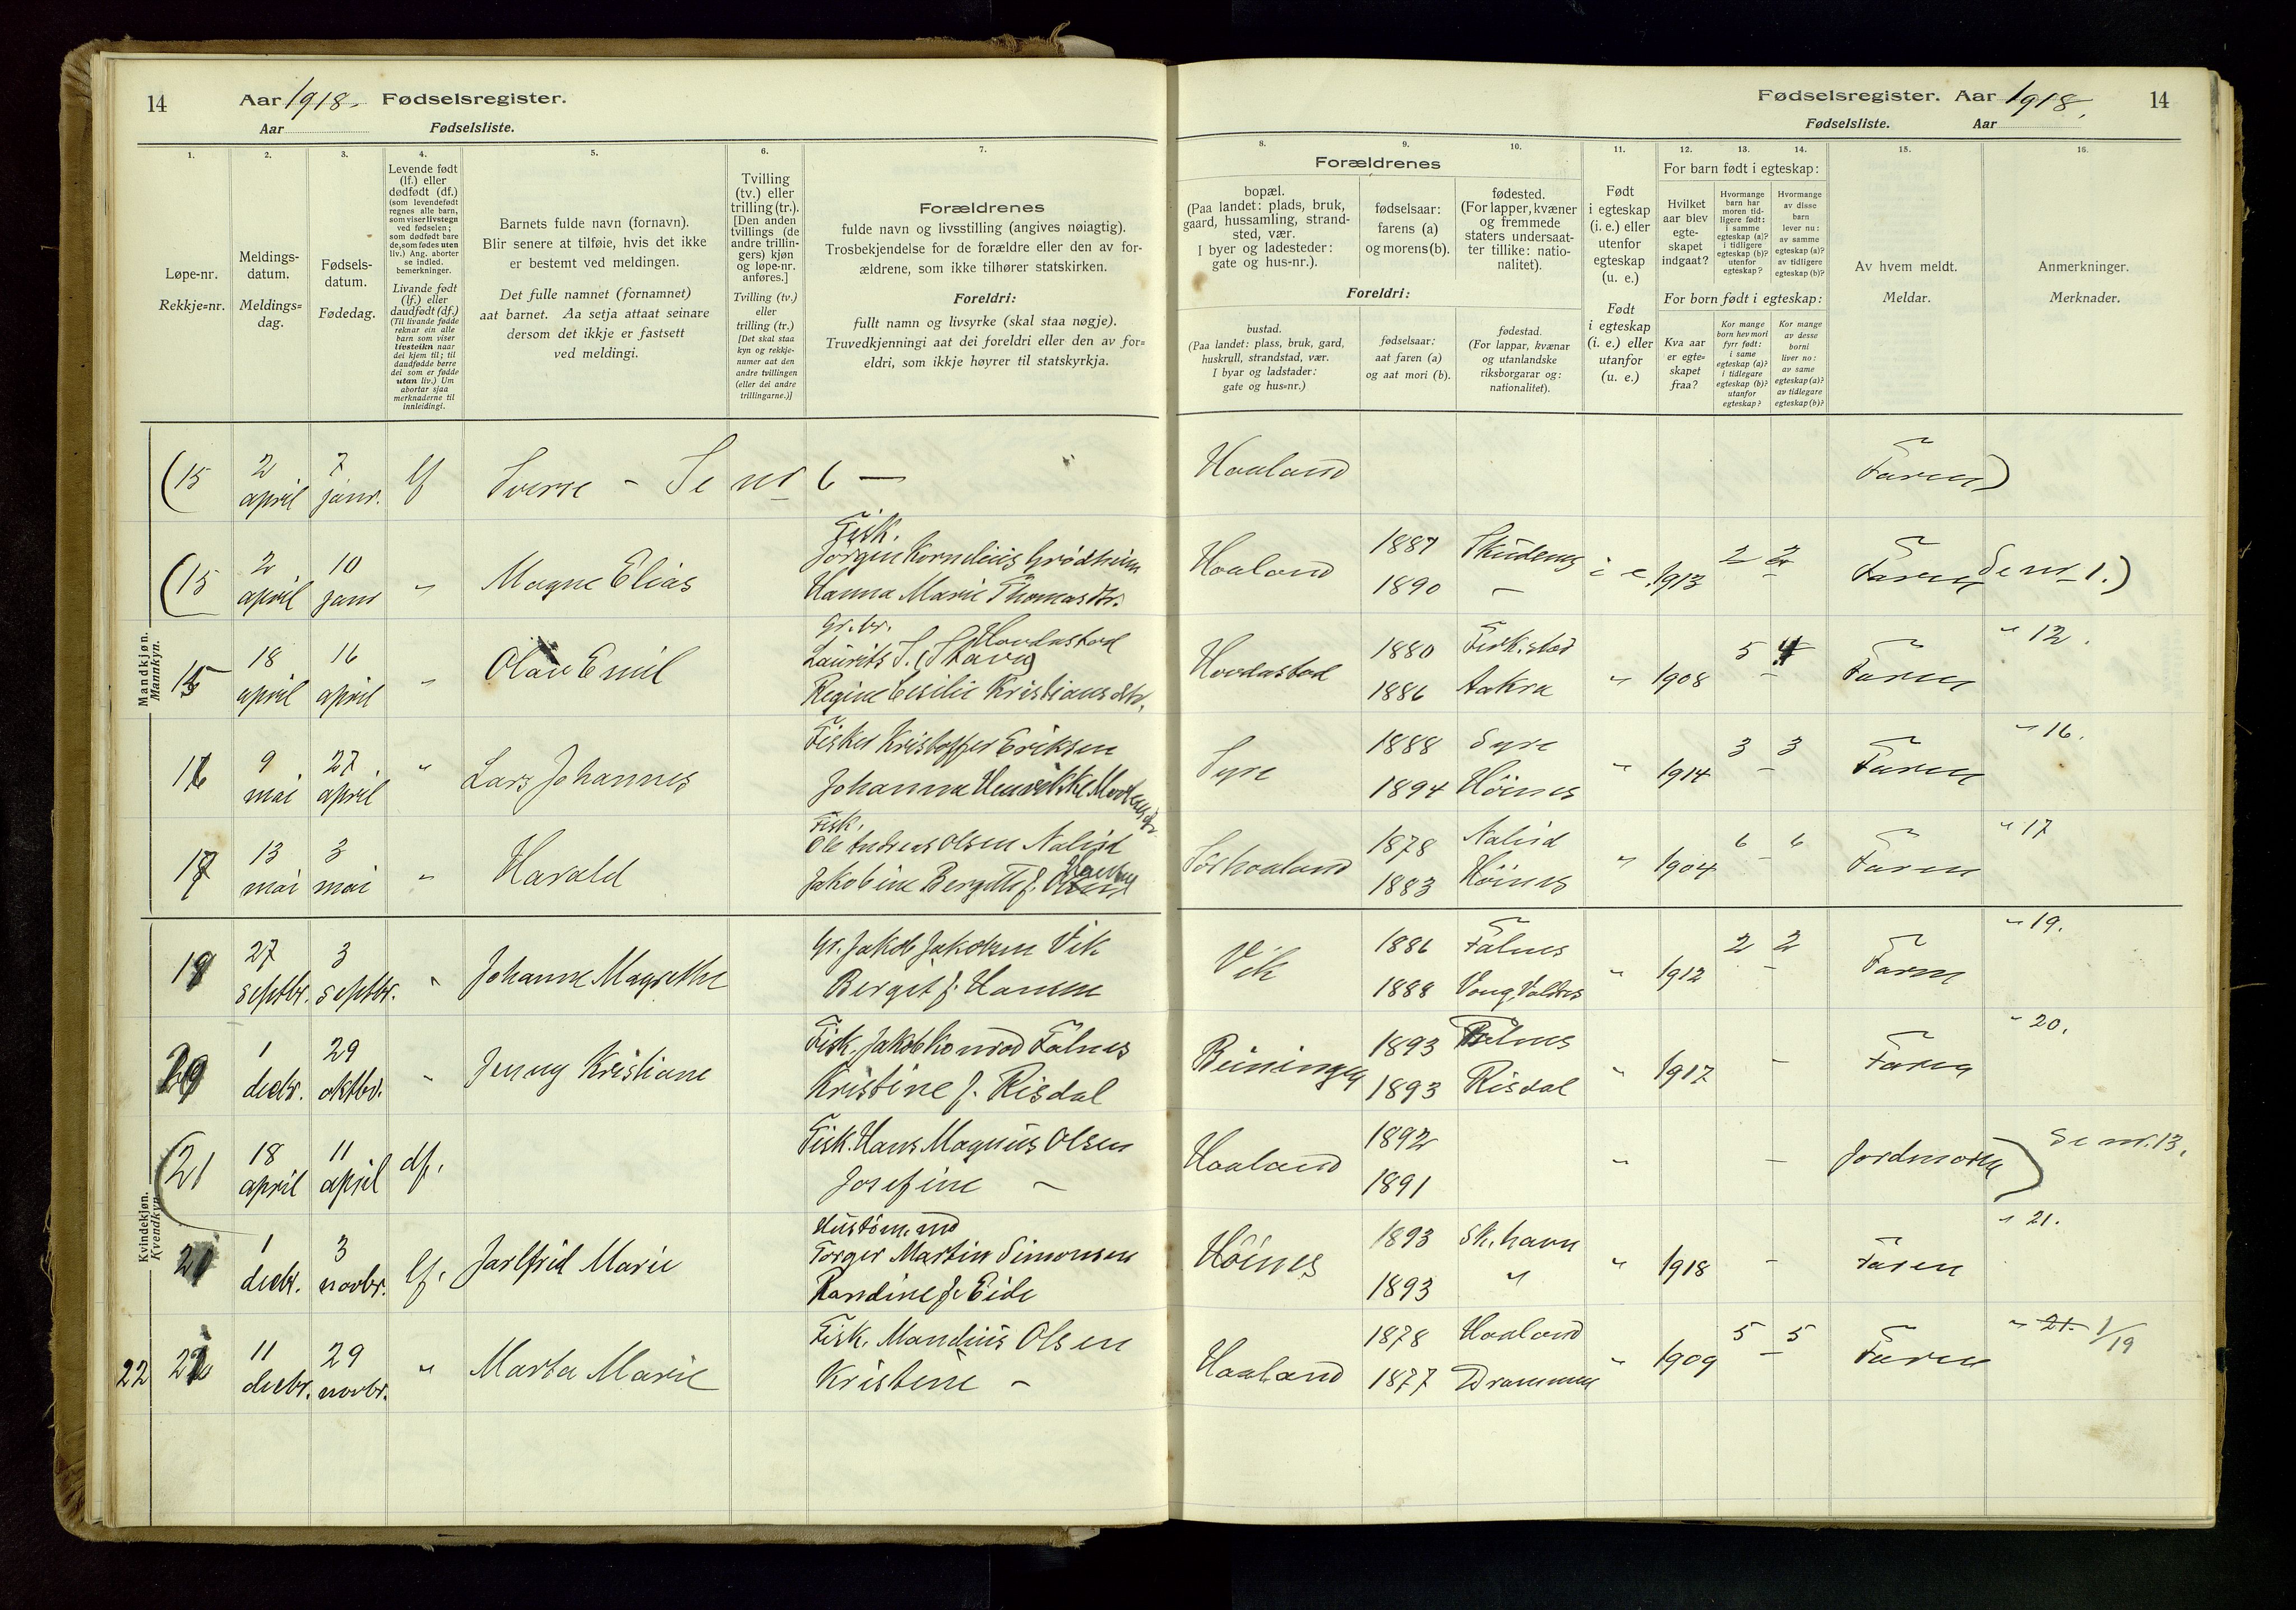 14
Aar 1918. Fødselsregister.
Aar Fødselsliste.
Fødselsregister. Aar 1918.
14
Fødselsliste. Aar
1. 2. 3. 4. 5. 6. 7. 8. 9. 10. 11. 12. 13. 14. 15. 16.
Løpe-nr.
Rekkje=nr.
Meldings-
datum.
Meldings=
dag.
Fødsels-
datum.
Fødedag.
Levende født
(lf.) eller
dødfødt (df.)
(som levendefødt
regnes alle barn,
som viser livstegn
ved fødselen;
som dødfødt bare
de, som fødes uten
liv.) Ang. aborter
se indled.
bemerkninger.
Livande født
(lf.) eller
daudfødt (df.)
(Til livande fødde
reknar ein alle
barn som viser
livsteikn naar
dei kjem til; til
daudfødde berre
dei som er fødde
utan liv.) Um
abortar sjaa
merknaderne til
innleidingi.
Barnets fulde navn (fornavn).
Blir senere at tilføie, hvis det ikke
er bestemt ved meldingen.
Det fulle namnet (fornamnet)
aat barnet. Aa setja attaat seinare
dersom det ikkje er fastsett
ved meldingi.
Tvilling
(tv.) eller
trilling (tr.).
[Den anden
tvillings (de
andre trillin-
gers) kjøn
og løpe-nr.
anføres.]
Tvilling (tv.)
eller
trilling (tr.)
[Det skal staa
kyn og rekkje-
numer aat den
andre tvillingen
(eller dei andre
trillingarne.)]
Forældrenes
fulde navn og livsstilling (angives nøiagtig).
Trosbekjendelse for de forældre eller den av for-
ældrene, som ikke tilhører statskirken.
Foreldri:
fullt namn og livsyrke (skal staa nøgje).
Truvedkjenningi aat dei foreldri eller den av for=
eldri, som ikkje høyrer til statskyrkja.
Forældrenes
bopæl.
(Paa landet: plads, bruk,
gaard, hussamling, strand-
sted, vær.
I byer og ladesteder:
gate og hus-nr.).
fødselsaar:
farens (a)
og morens (b).
fødested.
(For lapper, kvæner
og fremmede
staters undersaat-
ter tillike: natio-
nalitet).
Foreldri:
bustad.
(Paa landet: plass, bruk, gard,
huskrull, strandstad, vær.
I byar og ladstader:
gate og hus=nr.)
fødselsaar:
aat faren (a)
og aat mori (b).
fødestad.
(For lappar, kvænar
og utanlandske
riksborgarar og:
nationalitet).
Født
i egteskap
(i. e.) eller
utenfor
egteskap
(u. e.)
Født
i egteskap
(i. e.) eller
utanfor
(u. e.)
For barn født i egteskap:
Hvilket
aar blev
egte-
skapet
indgaat?
Hvormange
barn har
moren tid-
ligere født:
i samme
egteskap (a)?
i tidligere
egteskap (b)?
utenfor
egteskap?
Hvormange
av disse
barn
lever nu:
av samme
egteskap (a)?
av tidligere
egteskap (b)?
For born født i egteskap:
Kva aar
er egte=
skapet
fraa?
Kor mange
born hev mori
fyrr født:
i same
egteskap (a)?
i tidlegare
egteskap (b)?
utanfor
egteskap?
Kor mange
av desse
borni
liver no:
av same
egteskap (a)?
av tidlegare
egteskap (b)?
Av hvem meldt.
Meldar.
Anmerkninger.
Merknader.
Mandkjøn.
Mannkyn.
(15 2 april 7 janr. lf Sverre - Se nr 6 — Haaland Faren)
(15 2 april 10 janr " Magne Elias
Fisk.
Jørgen Kornelius Grødheim
Hanna Marie Thomasdtr.
Haaland 1887 Skudenes i e. 1913 2 - 2 Faren Se nr 1.)
1890 -
15 18 april 16 april " Olav Emil
Gr.br. Hovdastad
Laurits S. (Stava)
Regine Cecilie Kristiansdtr.
Hovdastad 1880 Ferk.stad " 1908 5 - 4 Faren " 12.
1886 Aakra
16 9 mai 27 april " Lars Johannes
Fisker Kristoffer Eriksen
Johanna Henrikke
Syre 1888 Syre " 1914 3 - 3 Faren " 16.
1894 Høines
17 13 mai 3 mai " Harald
Fisk.
Ole Andreas Olsen
Jakobine Bergitte f.
1878 " 1904 6 - 6 Faren " 17
1883 Høines
Kvindekjøn.
Kvendkyn.
19 27 septbr. 3 septbr. " Johanne Magrethe
Gr. Jakob Jakobsen Vik
Bergit f. Hansen
Vik 1886 Falnes " 1912 2 - 2 Faren " 19.
1888 Vang, Valdres
20 1 decbr. 29 oktbr. " Jenny Kristiane
Fisk. Jakob Konrad Falnes
Kristine f. Risdal
1893 Falnes " 1917 - Faren " 20.
1893 Risdal
(21 18 april 11 april df.
Fisk. Hans Magnus Olsen
Josefine -
Haaland 1892 " - Jordmoren) Se nr. 13.
1891
21 1 decbr. 3 novbr. lf. Jarlfrid Marie
Torger Martin Simonsen
Randine f. Eide
Høines 1893 Sk. havn " 1918 - Faren " 21.
1893 "
22 22 11 decbr. 29 novbr. " Marta Marie
Fisk. Mandius Olsen
Kristine -
Haaland 1878 Haaland " 1909 5 - 5 Faren " 21. 1/19
1877 Drammen